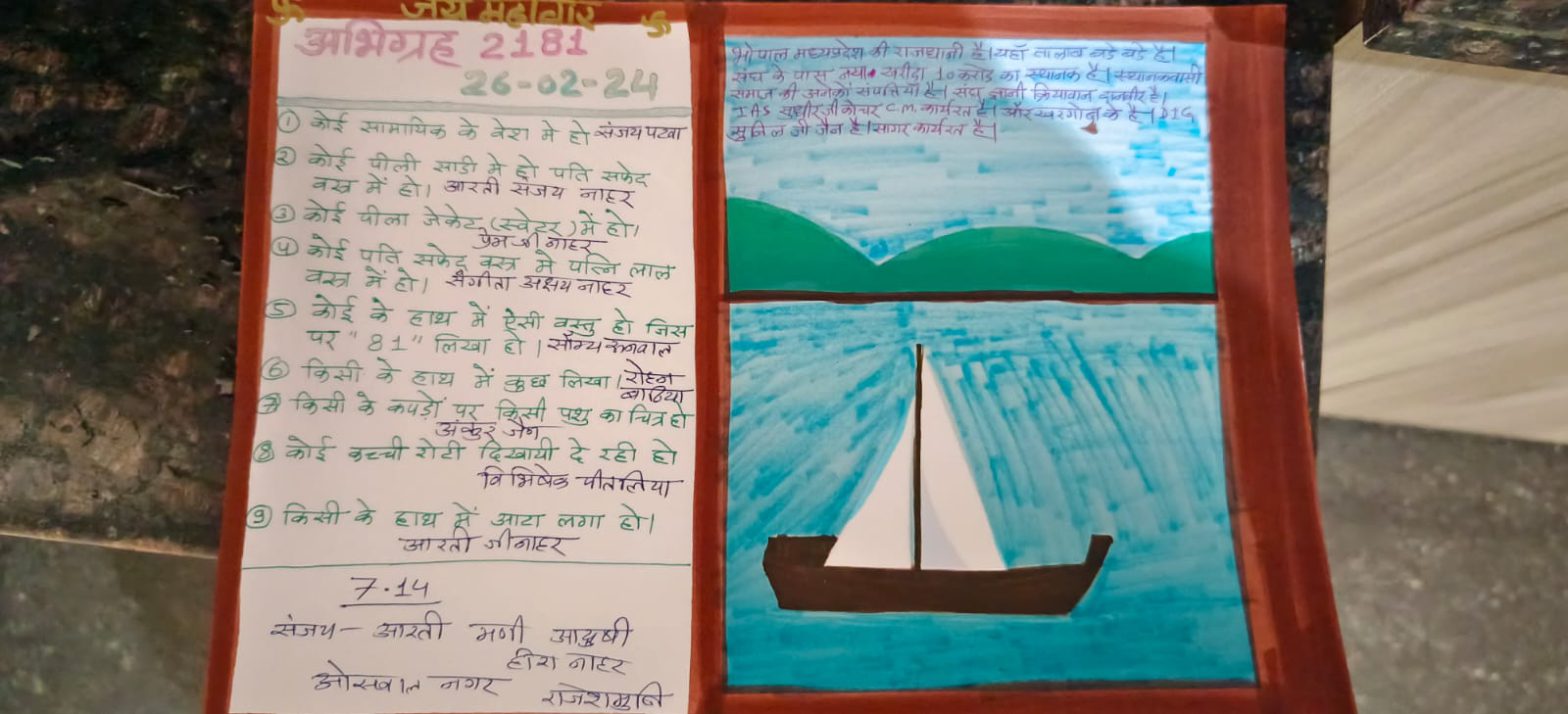 जय महावीर
अभिग्रह 2181
26-02-24
① कोई सामायिक के वेश मे हो संजय पटवा
② कोई पीली साडी मे हो पति सफेद
वस्त्र में हो। आरती संजय नाहर
③ कोई पीला जेकेट (स्वेटर) में हो।
प्रेम जी नाहर
④ कोई पति सफेद वस्त्र मे पत्नि लाल
वस्त्र में हो। संगीता अक्षय नाहर
⑤ कोई के हाथ में ऐसी वस्तु हो जिस
पर "81" लिखा हो। सौम्य
⑥ किसी के हाथ में कुछ लिखा। रोहन
⑦ किसी के कपड़ों पर किसी पशु का चित्र हो
अंकुर जैन
⑧ कोई कच्ची रोटी दिखायी दे रही हो
विभिषेक पीतलिया
⑨ किसी के हाथ में आटा लगा हो।
आरती जी नाहर
7.14
संजय - आरती मणी आयुषी
हीरा नाहर
ओसवाल नगर
राजेशमुनि
भोपाल मध्यप्रदेश की राजधानी है। यहाँ तालाब बडे बडे है।
संघ के पास नया खरीदा 10 करोड का स्थानक है। स्थानकवासी
समाज की अनेकों संपत्तियाँ है। संघ ज्ञानी क्रियावान दानवीर है।
IAS सुधीर जी कोचर C.M. कार्यरत है। और खरगोन के है। DIG
सुनिल जी जैन है। सागर कार्यरत है।